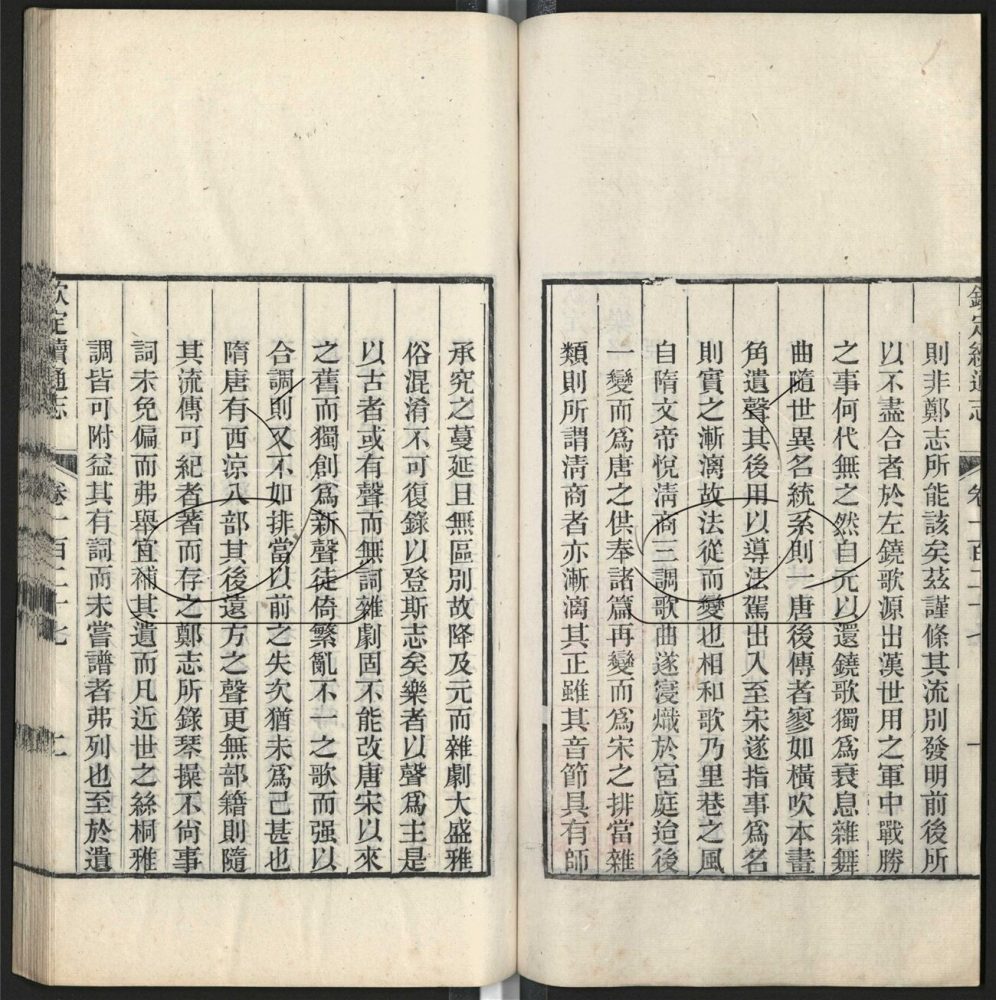 欽定續通志
卷一百二十七
則非鄭志所能該矣茲謹條其流別發明前後所
以不盡合者於左鐃歌源出漢世用之軍中戰勝
之事何代無之然自元以還鐃歌獨爲衰息雜舞
曲隨世異名統系則一唐後傳者寥如橫吹本畫
角遺聲其後用以導法駕出入至宋遂指事爲名
則實之漸漓故法從而變也相和歌乃里巷之風
自隋文帝悅清商三調歌曲遂寖熾於宮庭迨後
一變而爲唐之供奉諸篇再變而爲宋之排當雜
類則所謂清商者亦漸漓其正雖其音節具有師
承究之蔓延且無區別故降及元而雜劇大盛雅
俗混淆不可復錄以登斯志矣樂者以聲爲主是
以古者或有聲而無詞雜劇固不能改唐宋以來
之舊而獨創爲新聲徒倚繁亂不一之歌而强以
合調則又不如排當以前之失次猶未爲已甚也
隋唐有西涼八部其後遠方之聲更無部籍則隨
其流傳可紀者著而存之鄭志所錄琴操不尙事
詞未免偏而弗舉宜補其遺而凡近世之絲桐雅
調皆可附益其有詞而未嘗譜者弗列也至於遺
欽定續通志
卷一百二十七